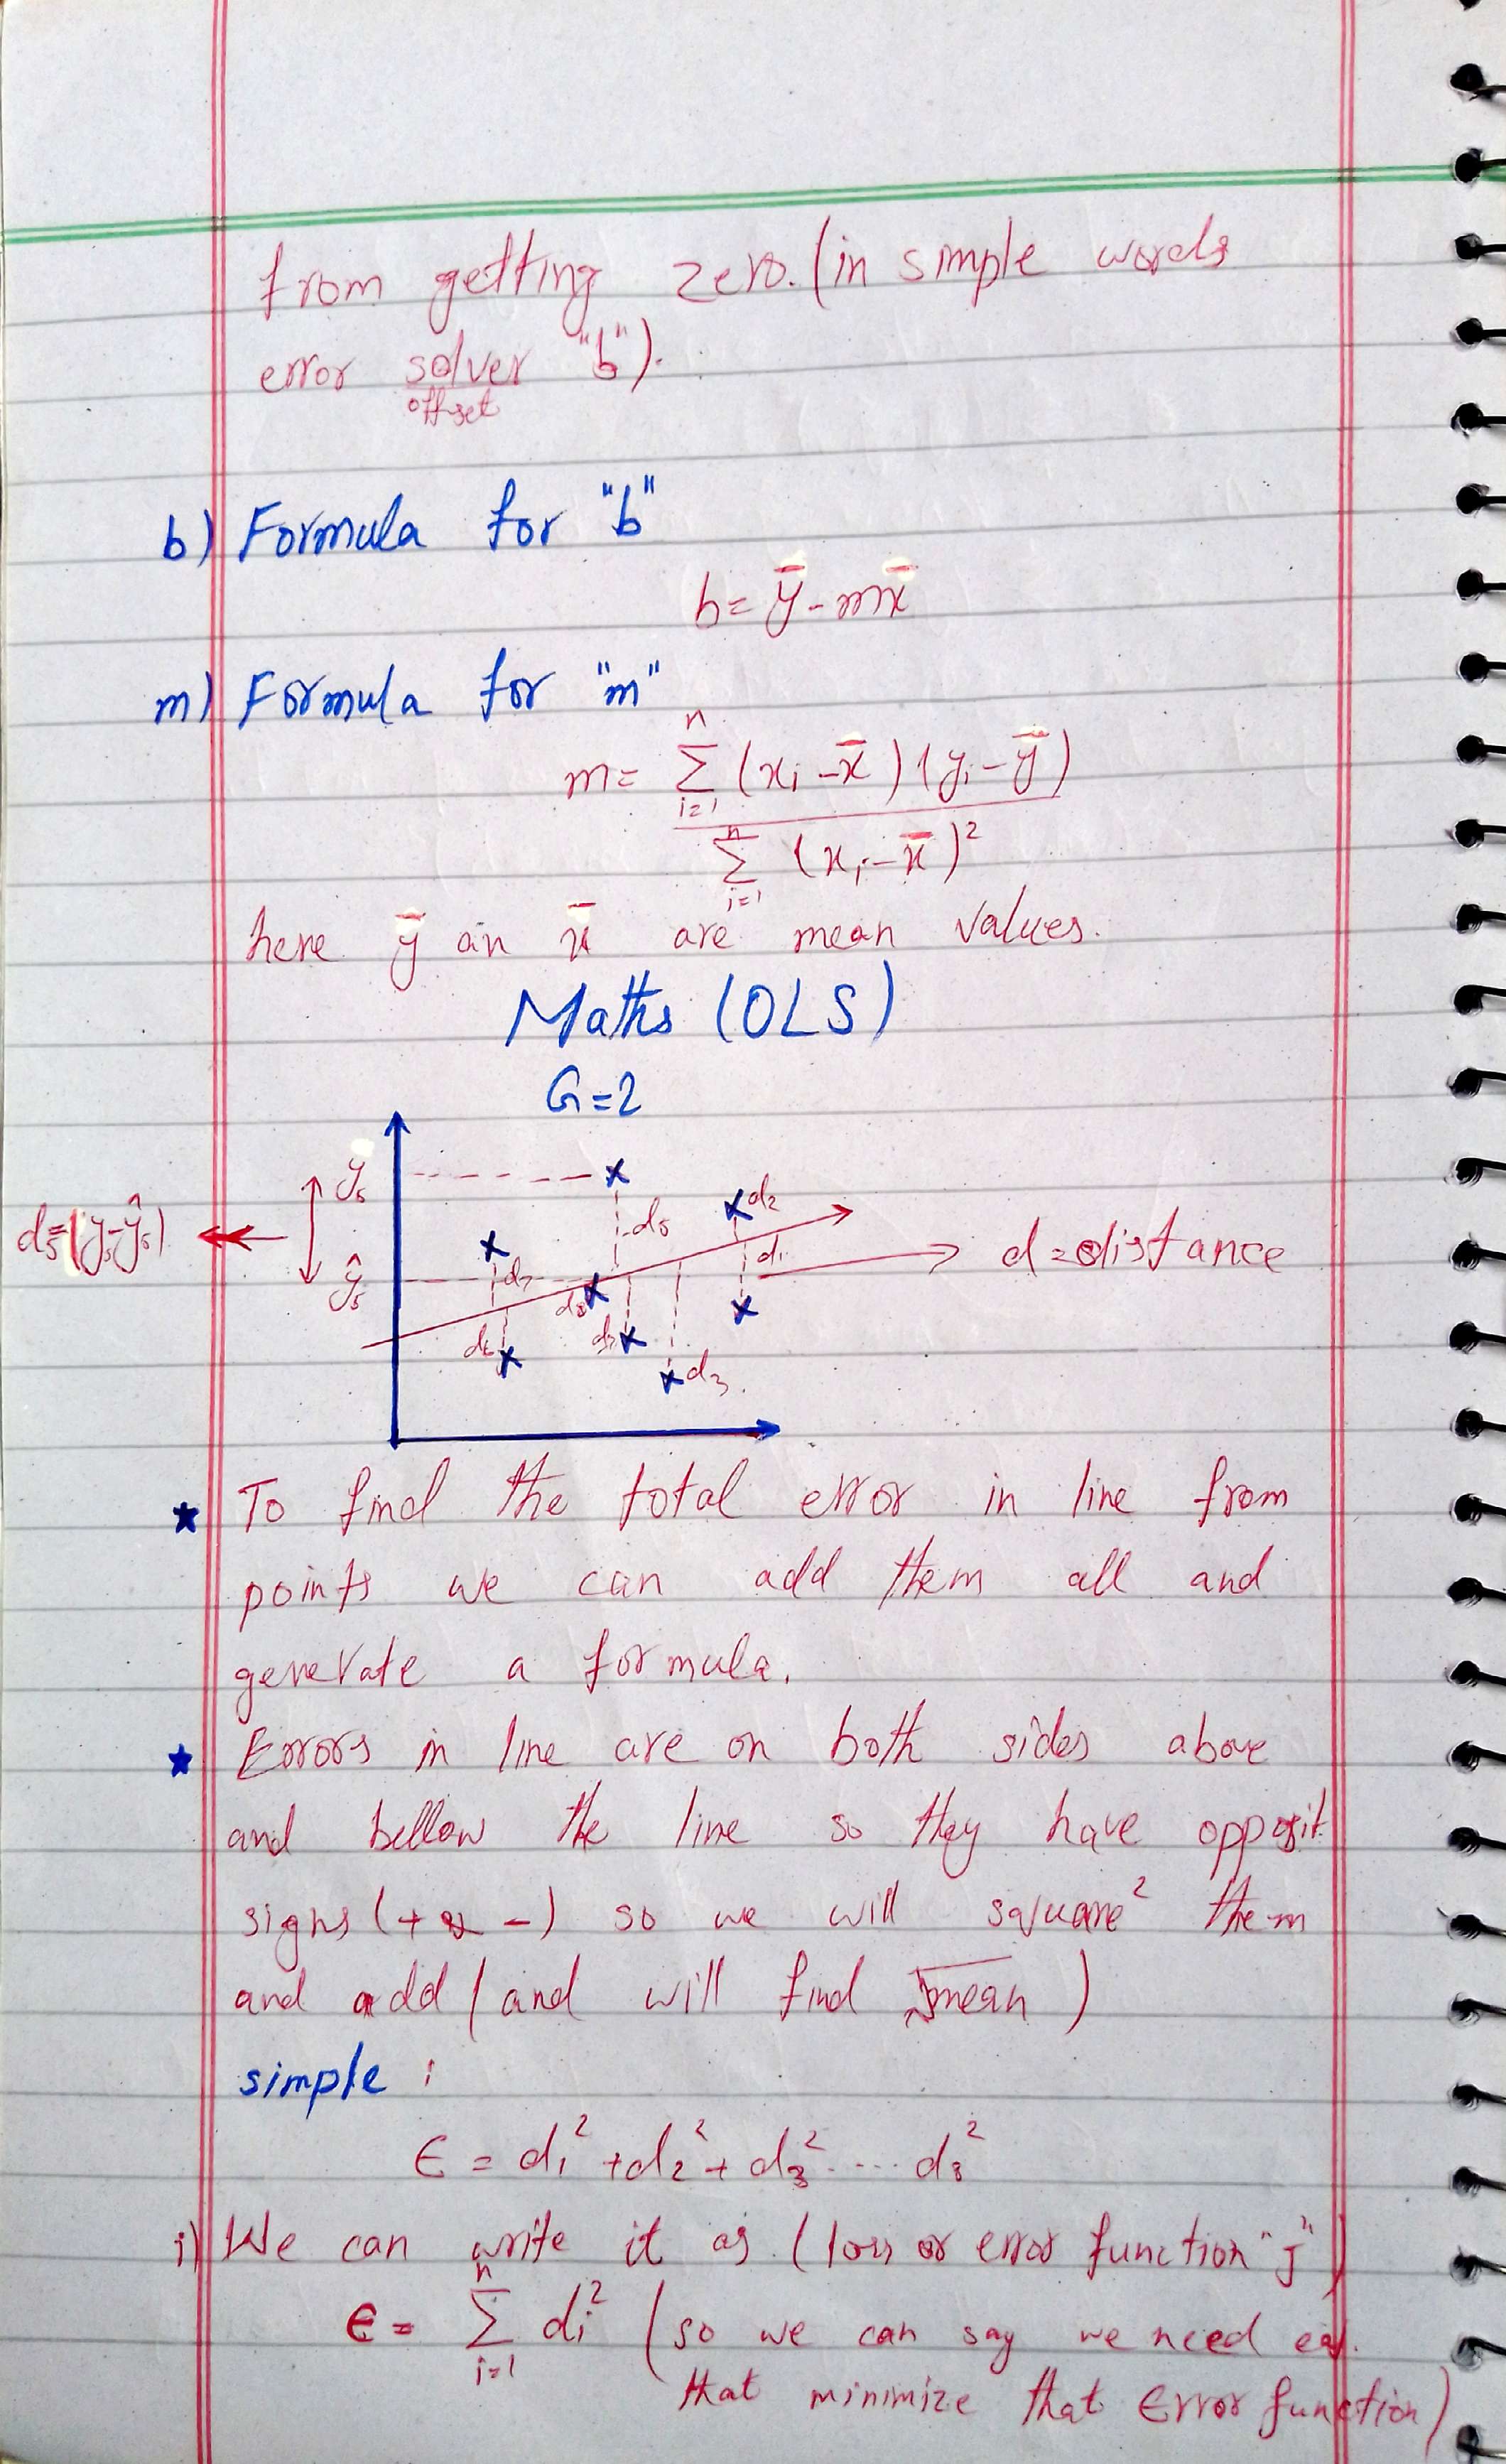 from getting zero. (in simple words
error solver "b").
offset
b) Formula for "b"
b = ȳ - mx̄
m) Formula for "m"
m = Σ (xᵢ - x̄) (yᵢ - ȳ)
n
i=1
Σ (xᵢ - x̄)²
n
i=1
here ȳ an x̄ are mean values.
Maths (OLS)
G=2
y₅
d₅=(y₅-ŷ₅)
ŷ₅
d₅
d₂
d₁
d=distance
d₃
To find the total error in line from
points we can add them all and
generate a formula.
Errors in line are on both sides above
and bellow the line so they have opposit
signs (+ & -) so we will square² them
and add (and will find √mean)
simple :
ϵ = d₁² + d₂² + d₃² .... d₈²
i) We can write it as (loss or error function "j")
ϵ = Σ dᵢ² (so we can say we need
n
i=1
that minimize that Error function)